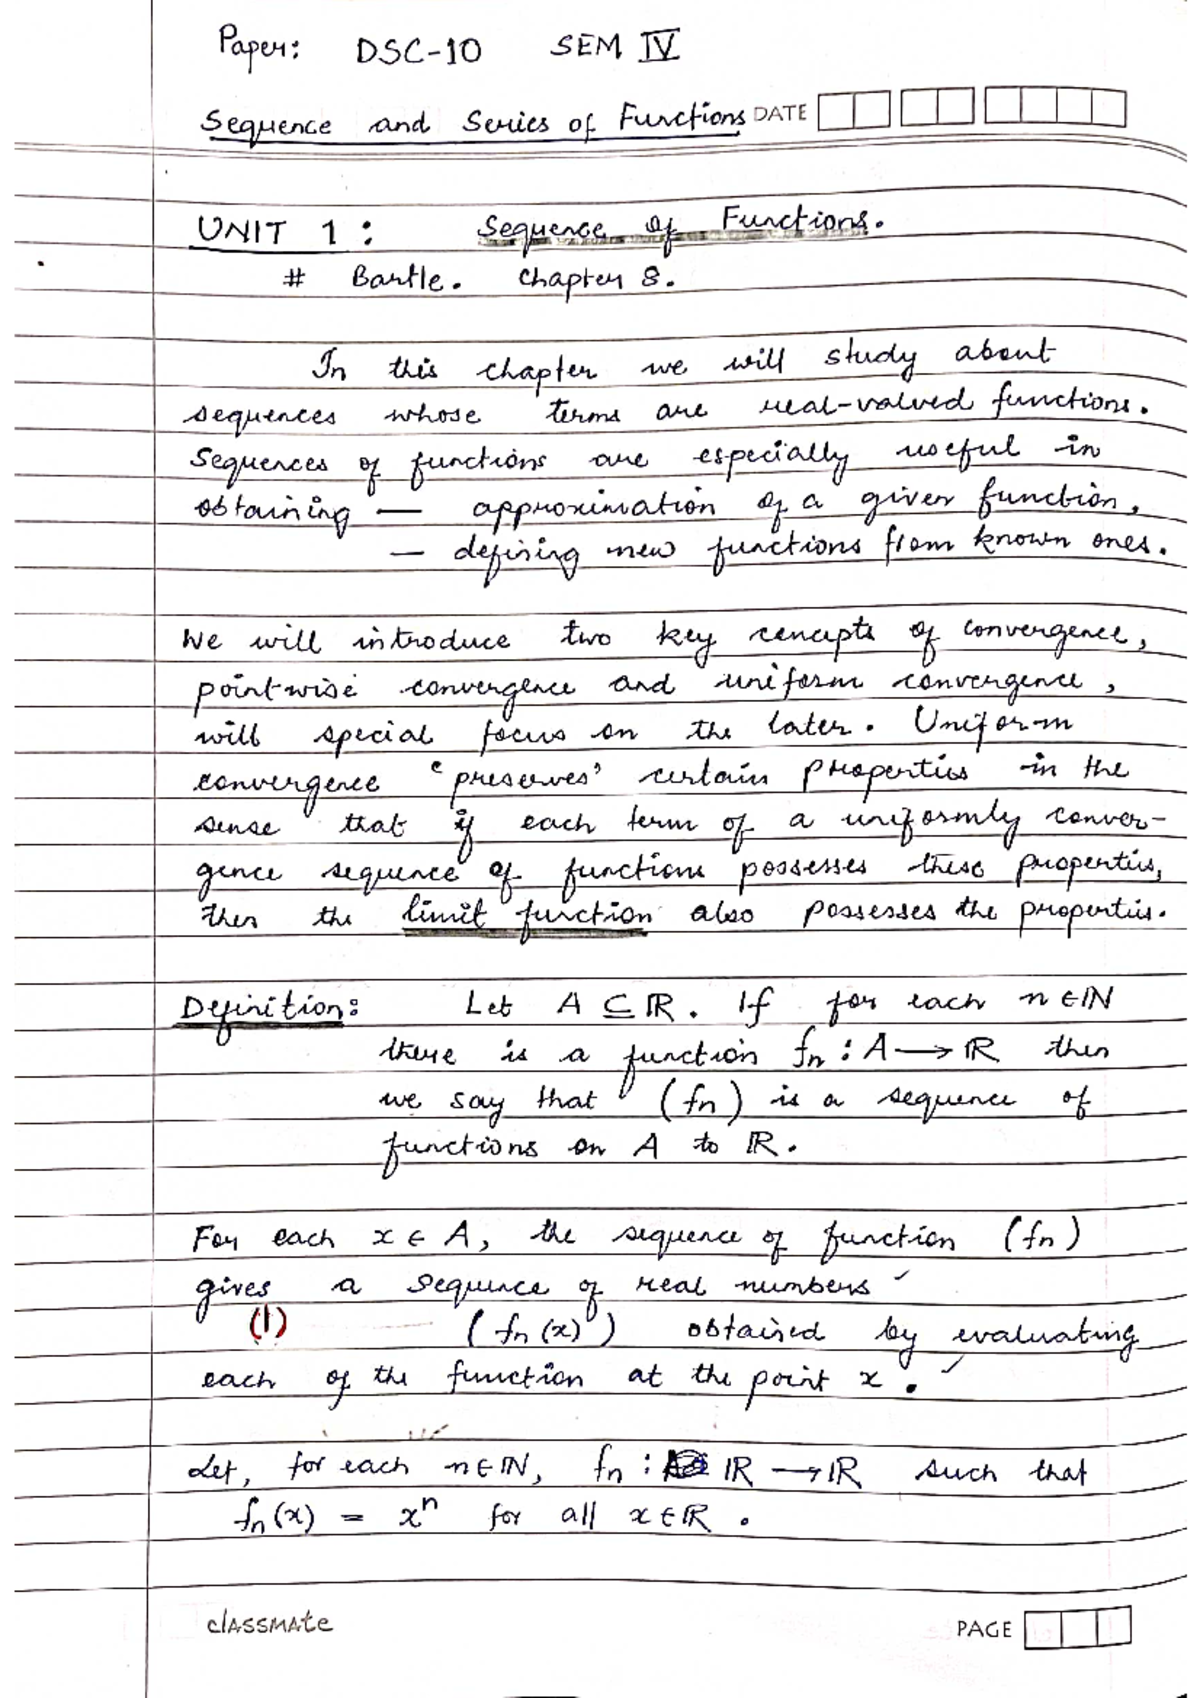 Paper: DSC-10 SEM IV
Sequence and Series of Functions DATE
UNIT 1 : Sequence of Functions.
# Bartle. Chapter 8.
In this chapter we will study about
sequences whose terms are real-valued functions.
Sequences of functions are especially useful in
obtaining — approximation of a given function,
— defining new functions from known ones.
We will introduce two key concepts of convergence,
pointwise convergence and uniform convergence,
will special focus on the later. Uniform
convergence 'preserves' certain properties in the
sense that if each term of a uniformly conver-
gence sequence of functions possesses these properties,
then the limit function also possesses the properties.
Definition: Let A ⊆ ℝ. If for each n ∈ ℕ
there is a function fₙ : A → ℝ then
we say that (fₙ) is a sequence of
functions on A to ℝ.
For each x ∈ A, the sequence of function (fₙ)
gives a sequence of real numbers
(1) (fₙ(x)) obtained by evaluating
each of the function at the point x.
Let, for each n ∈ ℕ, fₙ : ℝ → ℝ such that
fₙ(x) = xⁿ for all x ∈ ℝ.
classmate
PAGE